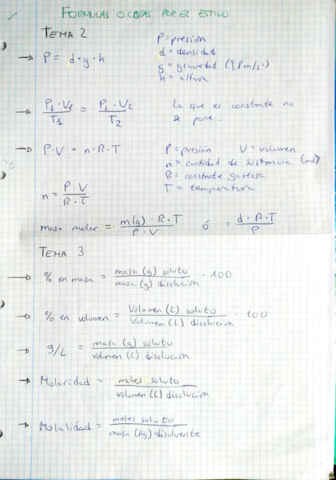 FORMULAS O COSAS POR EL ESTILO
TEMA 2
→ P = d · g · h
P = presión
d = densidad
g = gravedad (9,8 m/s²)
h = altura
→ P₁ · V₁ / T₁ = P₂ · V₂ / T₂
Lo que es constante no
se pone.
→ P · V = n · R · T
P = presión V = volumen
n = cantidad de sustancia (mol)
R = constante gaseosa
T = temperatura
n = P · V / R · T
masa molar = m(g) · R · T / P · V ó = d · R · T / P
TEMA 3
→ % en masa = masa (g) soluto / masa (g) disolución · 100
→ % en volumen = Volumen (L) soluto / Volumen (L) disolución · 100
→ g/L = masa (g) soluto / volumen (L) disolución
→ Molaridad = moles soluto / volumen (L) disolución
→ Molalidad = moles soluto / masa (kg) disolvente